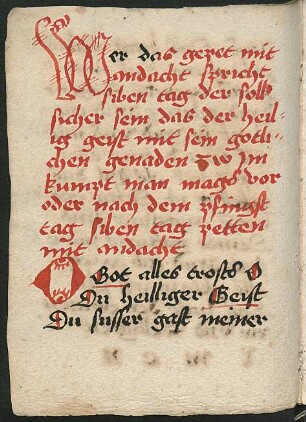 Wer das gepet mit
andacht spricht
siben tag der soll
sicher sein das der heil-
ig geist mit sein gotli-
chen genaden zw im
kumpt man mags vor
oder nach dem pfingst
tag siben tag petten
mit andacht
O Got alles trosts O
Du heilliger Geist
Du susser gast meiner